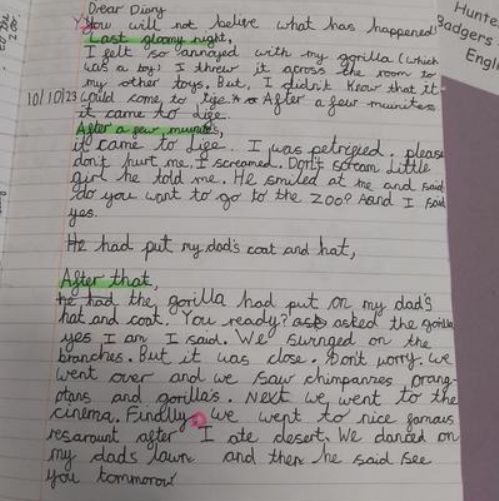 Drear Diary
You will not belive what has happened!
Last gloomy night,
I felt so annoyed with my gorilla (which
was a toy) I threw it across the room to
my other toys. But, I didn't know that it
10/10/23 could come to life. After a few muinites
it came to life.
After a few muinites,
it came to life. I was petrified. please
don't hurt me. I screamed. Don't scream Little
girl he told me. He smiled at me and said
do you want to go to the zoo? And I said
yes.
He had put my dad's coat and hat,
After that,
He had the gorilla had put on my dad's
hat and coat. You ready? asked the gorilla
yes I am I said. We surnged on the
branches. But it was close. Don't worry. we
went over and we saw chimpanzes orang-
otans and gorilla's. Next we went to the
cinema. Finally, we went to nice famous
resaraunt after I ate desert. We danced on
my dads lawn and then he said see
you tommorow
Hunte
Badgers
Engli